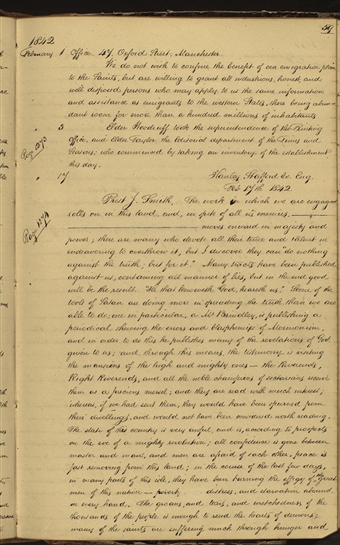 59
1842
February 1 Office 47, Oxford Street, Manchester.
We do not wish to confine the benefit of our emigration plan
to the Saints, but are willing to grant all industrious, honest, and
well disposed persons who may apply to us the same information
and assistance as emigrants to the western States, there being abun-
dant room for more than a hundred millions of inhabitants
3 Elder Woodruff took the superintendence of the Printing
Office, and Elder Taylor the Editorial department of the Times and
Seasons; who commenced by taking an inventory of the establishment
this day.
17 Hanley, Stafford Co. Eng.
Feb 17th 1842.
Prest J. Smith, The work in which we are engaged
rolls on in this land, and, in spite of all its enemies,
moves onward in majesty and
power; there are many who devote all their time and talent in
endeavoring to overthrow it, but I discover they can "do nothing
against the truth, but for it." Many tracts have been published
against us, containing all manner of lies, but in the end good
will be the result. "He that knoweth God, heareth us." Some of the
tools of Satan are doing more in spreading the truth than we are
able to do; one in particular, a Mr is publishing a
periodical, showing the errors and blasphemies of Mormonism,
and in order to do this he publishes many of the revelations of God
given to us; and through this means, the testimony is visiting
the mansions of the high and mighty ones — the Reverends,
Right Reverends, and all the noble champions of sectarianism receive
them as a precious morsel; and they are read with much interest;
whereas, if we had sent them, they would have been spurned from
their dwellings, and would not have been considered worth reading.
The state of this country is very awful, and is, according to prospects
on the eve of a mighty revolution; all confidence is gone between
master and man, and men are afraid of each other; peace is
fast removing from this land; in the course of the last few days,
in many parts of this isle, they have been burning the effigy of the great
men of this nation — poverty, distress, and starvation abound
on every hand. The groans, and tears, and wretchedness of the
thousands of the people is enough to rend the hearts of demons;
many of the saints are suffering much through hunger and